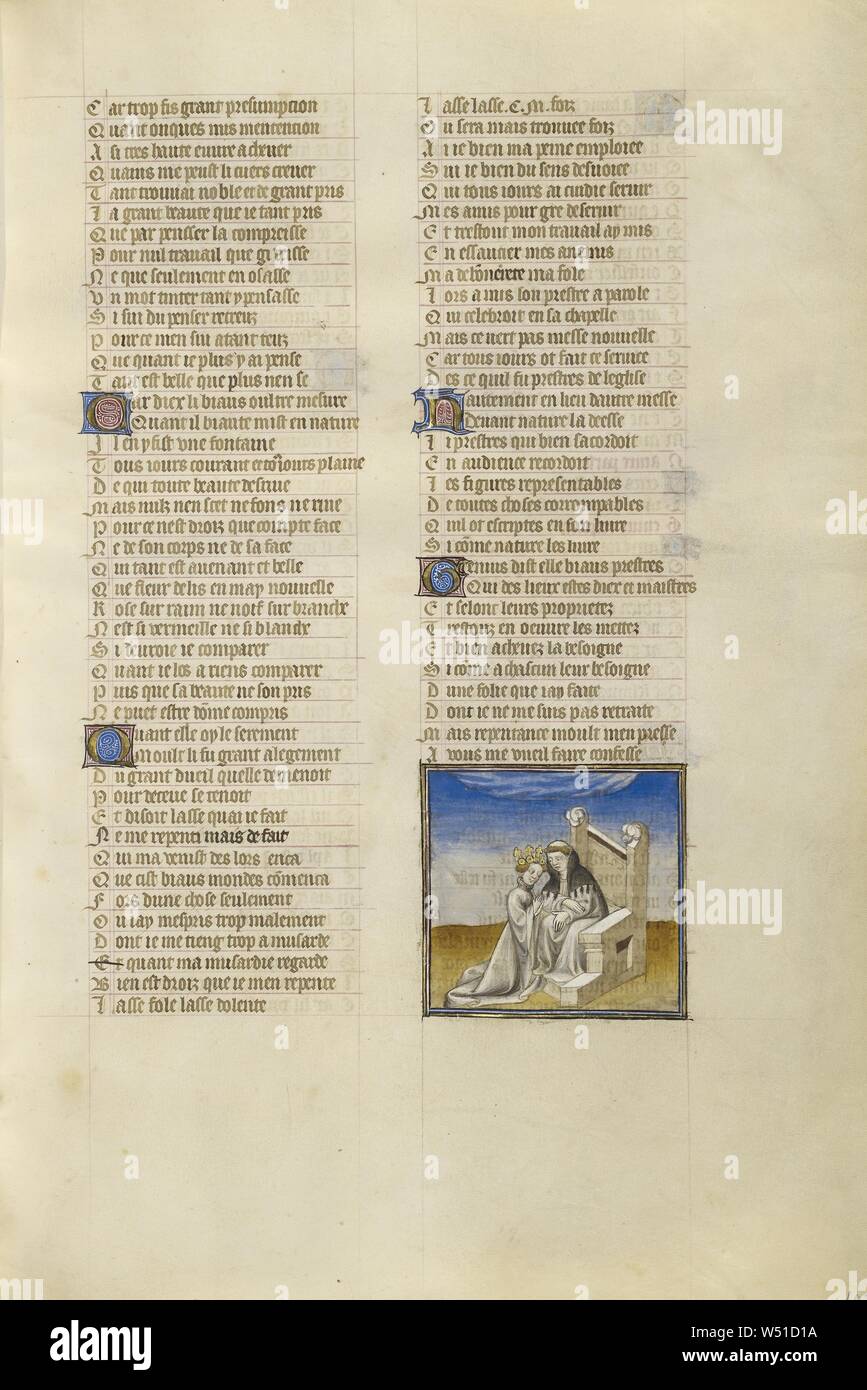 Car trop fis grant presumpcion
Quant onques mis mentencion
A si tres haute euure acheuer
Quains me peust li cuers creuer
Tant trouuai noble et de grant pris
La grant beaute que ie tant pris
Que par penser la compreisse
Pour nul trauail que gi meisse
Ne que seulement en osasse
Un mot tinter tant y pensasse
Si sui du penser recreuz
Pour ce men sui atant teuz
Que quant ie plus y ai pense
Tant est belle que plus nen se
Car diex li biaus oultre mesure
Quant il biaute mist en nature
Il en y fist vne fontaine
Tous iours courant et touiours plaine
De qui toute beaute desriue
Mais nulz nen scet ne fons ne riue
Pour ce nest droiz que compte face
Ne de son corps ne de sa face
Qui tant est auenant et belle
Que fleur de lis en may nouuelle
Rose sur raim ne noif sur branche
Nest si vermeille ne si blanche
Si deuroie ie comparer
Quant ie los a riens comparer
Puis que sa beaute ne son pris
Ne puet estre dome compris
Quant elle oy le serement
Moult li fu grant alegement
Du grant dueil quelle demenoit
Pour deceue se tenoit
Et disoit lasse quai ie fait
Ne me repenti mais de fait
Qui ma venist des lors enca
Que cist biaus mondes comenca
Fors dune chose seulement
Ou iay mespris trop malement
Dont ie me tieng trop a musarde
Et quant ma musardie regarde
Bien est droiz que ie men repente
Lasse fole lasse dolente
Lasse lasse .C.M. foiz
Ou sera mais trouuee foiz
Ai ie bien ma peine emploiee
Sui ie bien du sens desuoiee
Qui tous iours ai cuidie seruir
Mes amis pour gre deseruir
Et trestout mon trauail ay mis
En essaucier mes anemis
Ma debonerete ma fole
Lors a mis son prestre a parole
Qui celebroit en sa chapelle
Mais ce nert pas messe nouuelle
Car tous iours ot fait ce seruice
Des ce quil fu prestres de leglise
Hautement en lieu dautre messe
Deuant nature la deesse
Li prestres qui bien sacordoit
En audience recordoit
Les figures representables
De toutes choses corrompables
Quil ot escriptes en son liure
Si come nature les liure
Genius dist elle biaus prestres
Qui des lieux estes diex et maistres
Et selont leurs proprietez
Trestouz en oeuure les mettez
Et bien acheuez la besoigne
Si come a chascun leur besoigne
Dune folie que iay faite
Dont ie ne me suis pas retraite
Mais repentance moult men presse
A vous me vueil faire confesse
alamy
Image ID: W51D1A
www.alamy.com